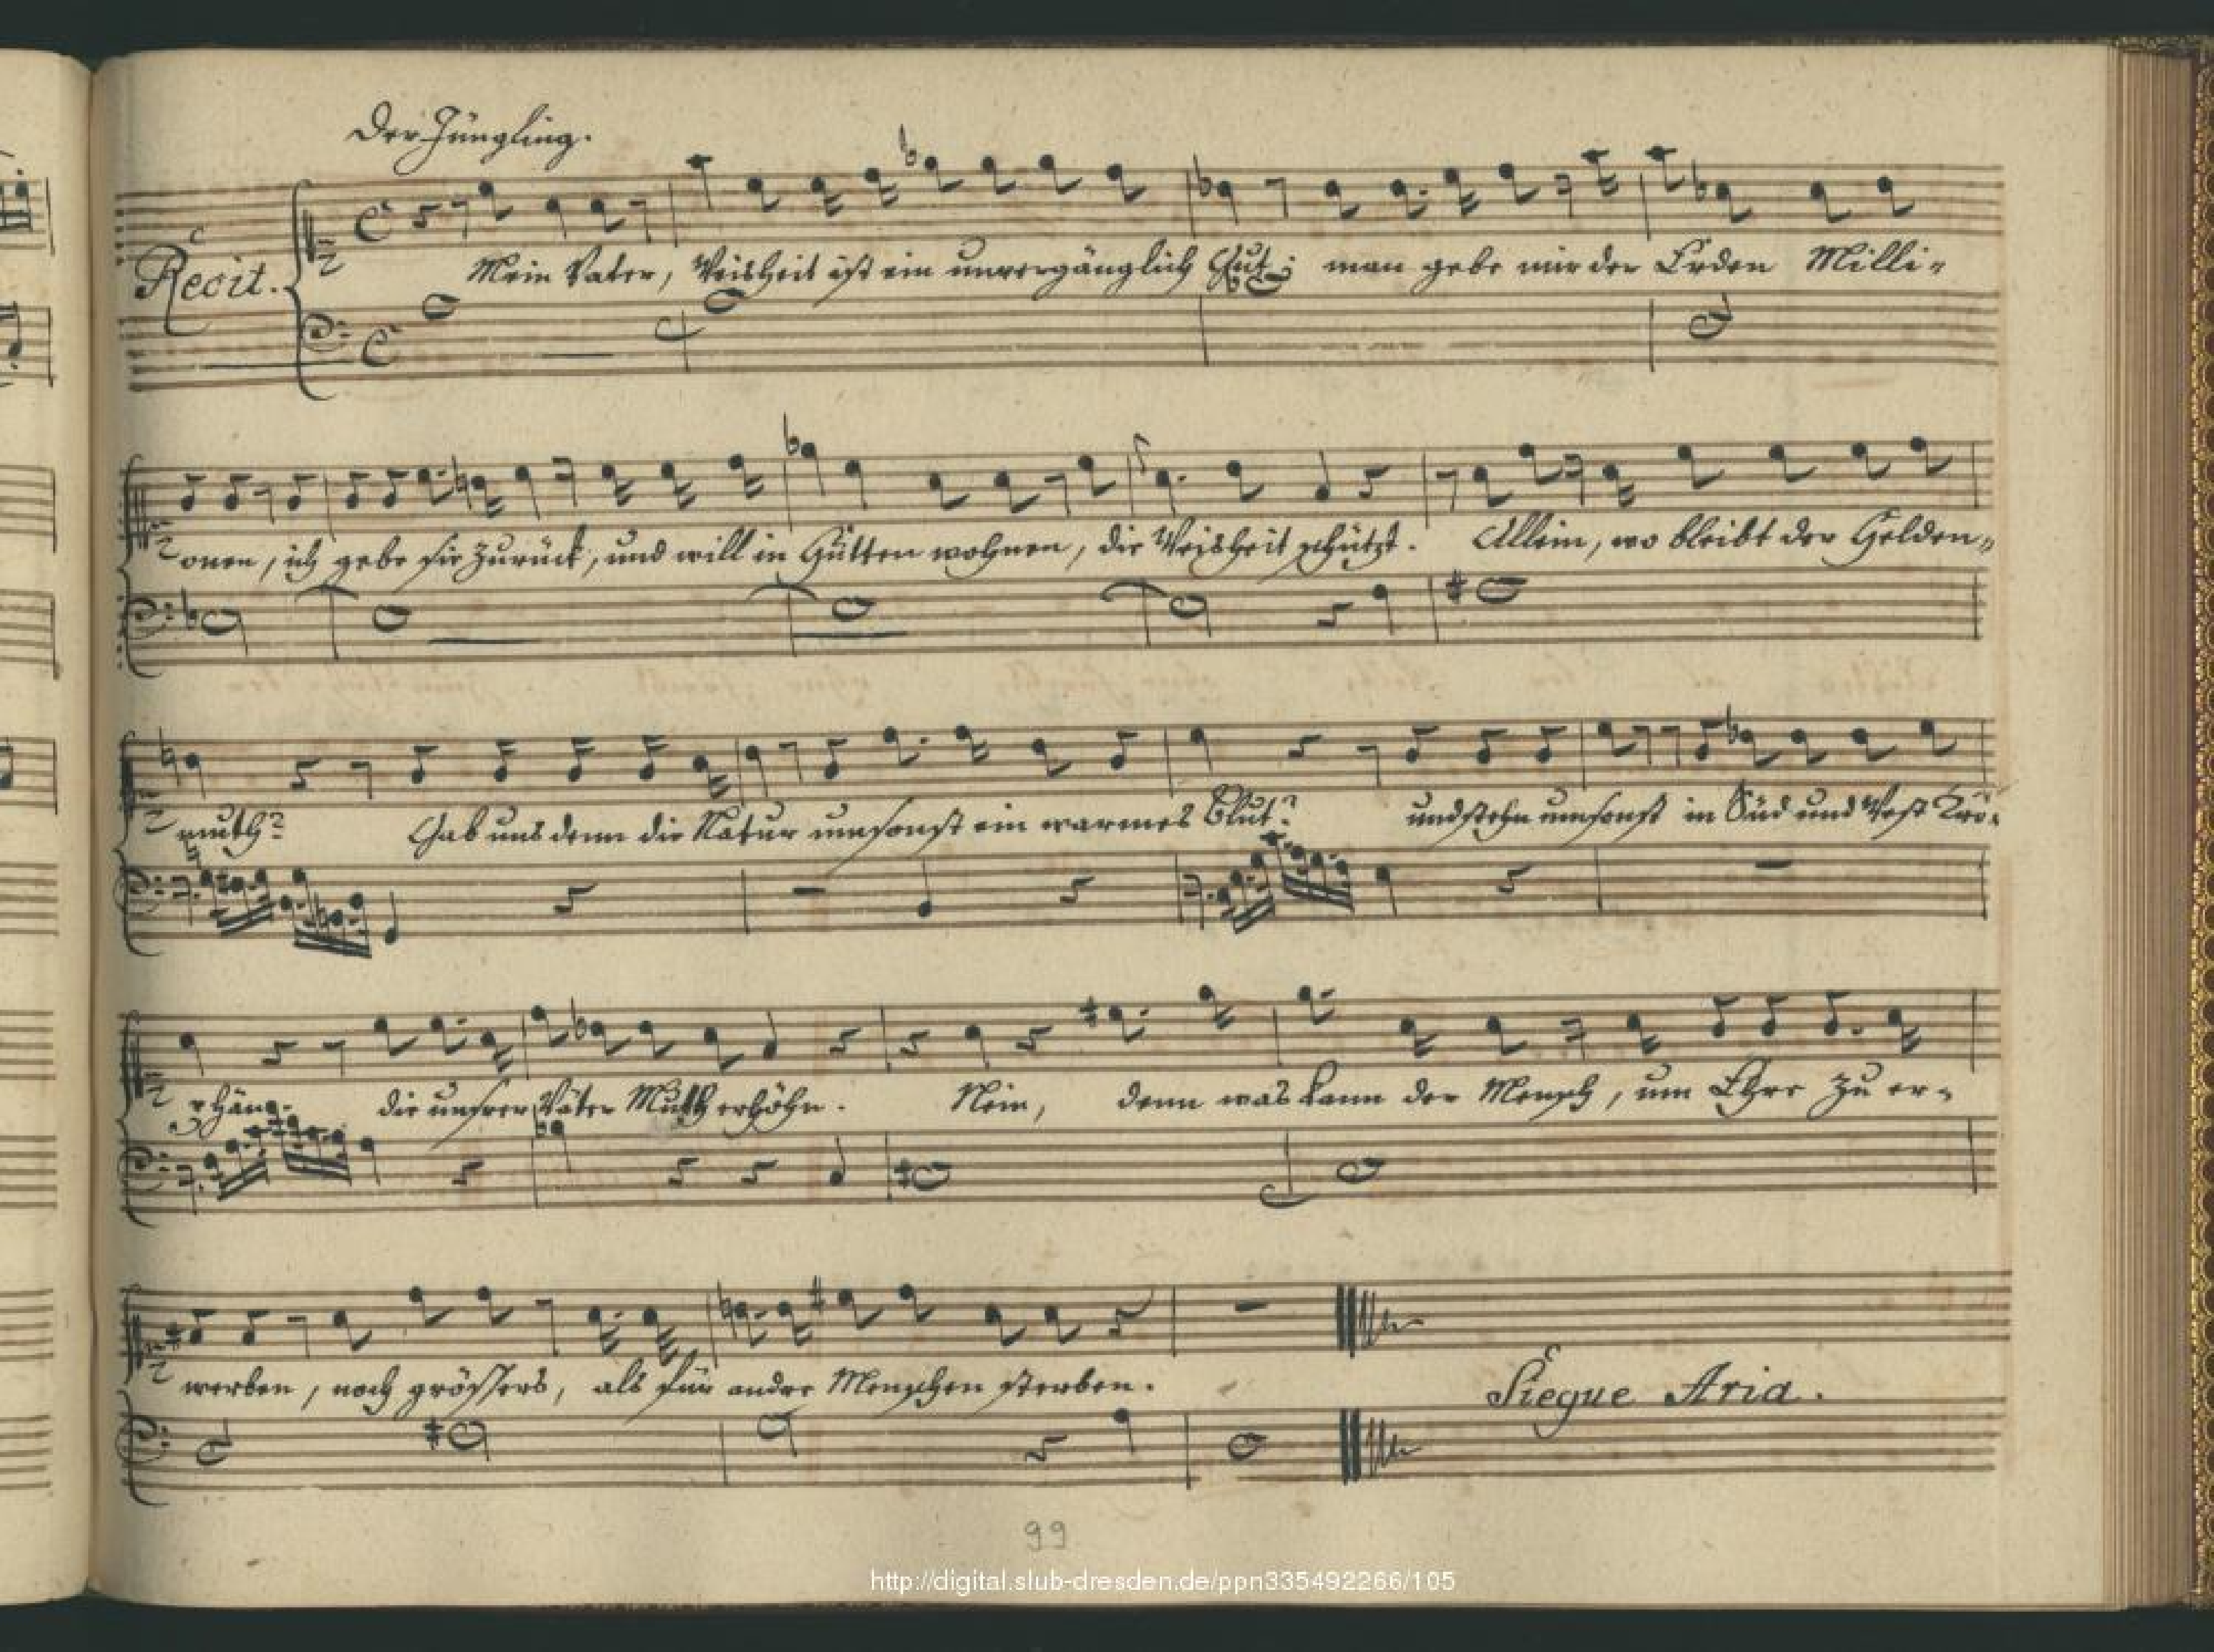 Der Jüngling.
Recit.
Mein Vater, Weisheit ist ein unvergänglich Gut; man gebe mir der Erden Milli-
onen, ich gebe sie zurück, und will in Hütten wohnen, die Weisheit schützt. Allein, wo bleibt der Helden-
muth? Gab uns denn die Natur umsonst ein warmes Blut? und stehn umsonst in Süd und West
die unsrer Väter Muth erhöhn. Nein, denn was kann der Mensch, um Ehre zu er-
werben, noch grössers, als für andre Menschen sterben.
Siegue Aria.
99
http://digital.slub-dresden.de/ppn335492266/105